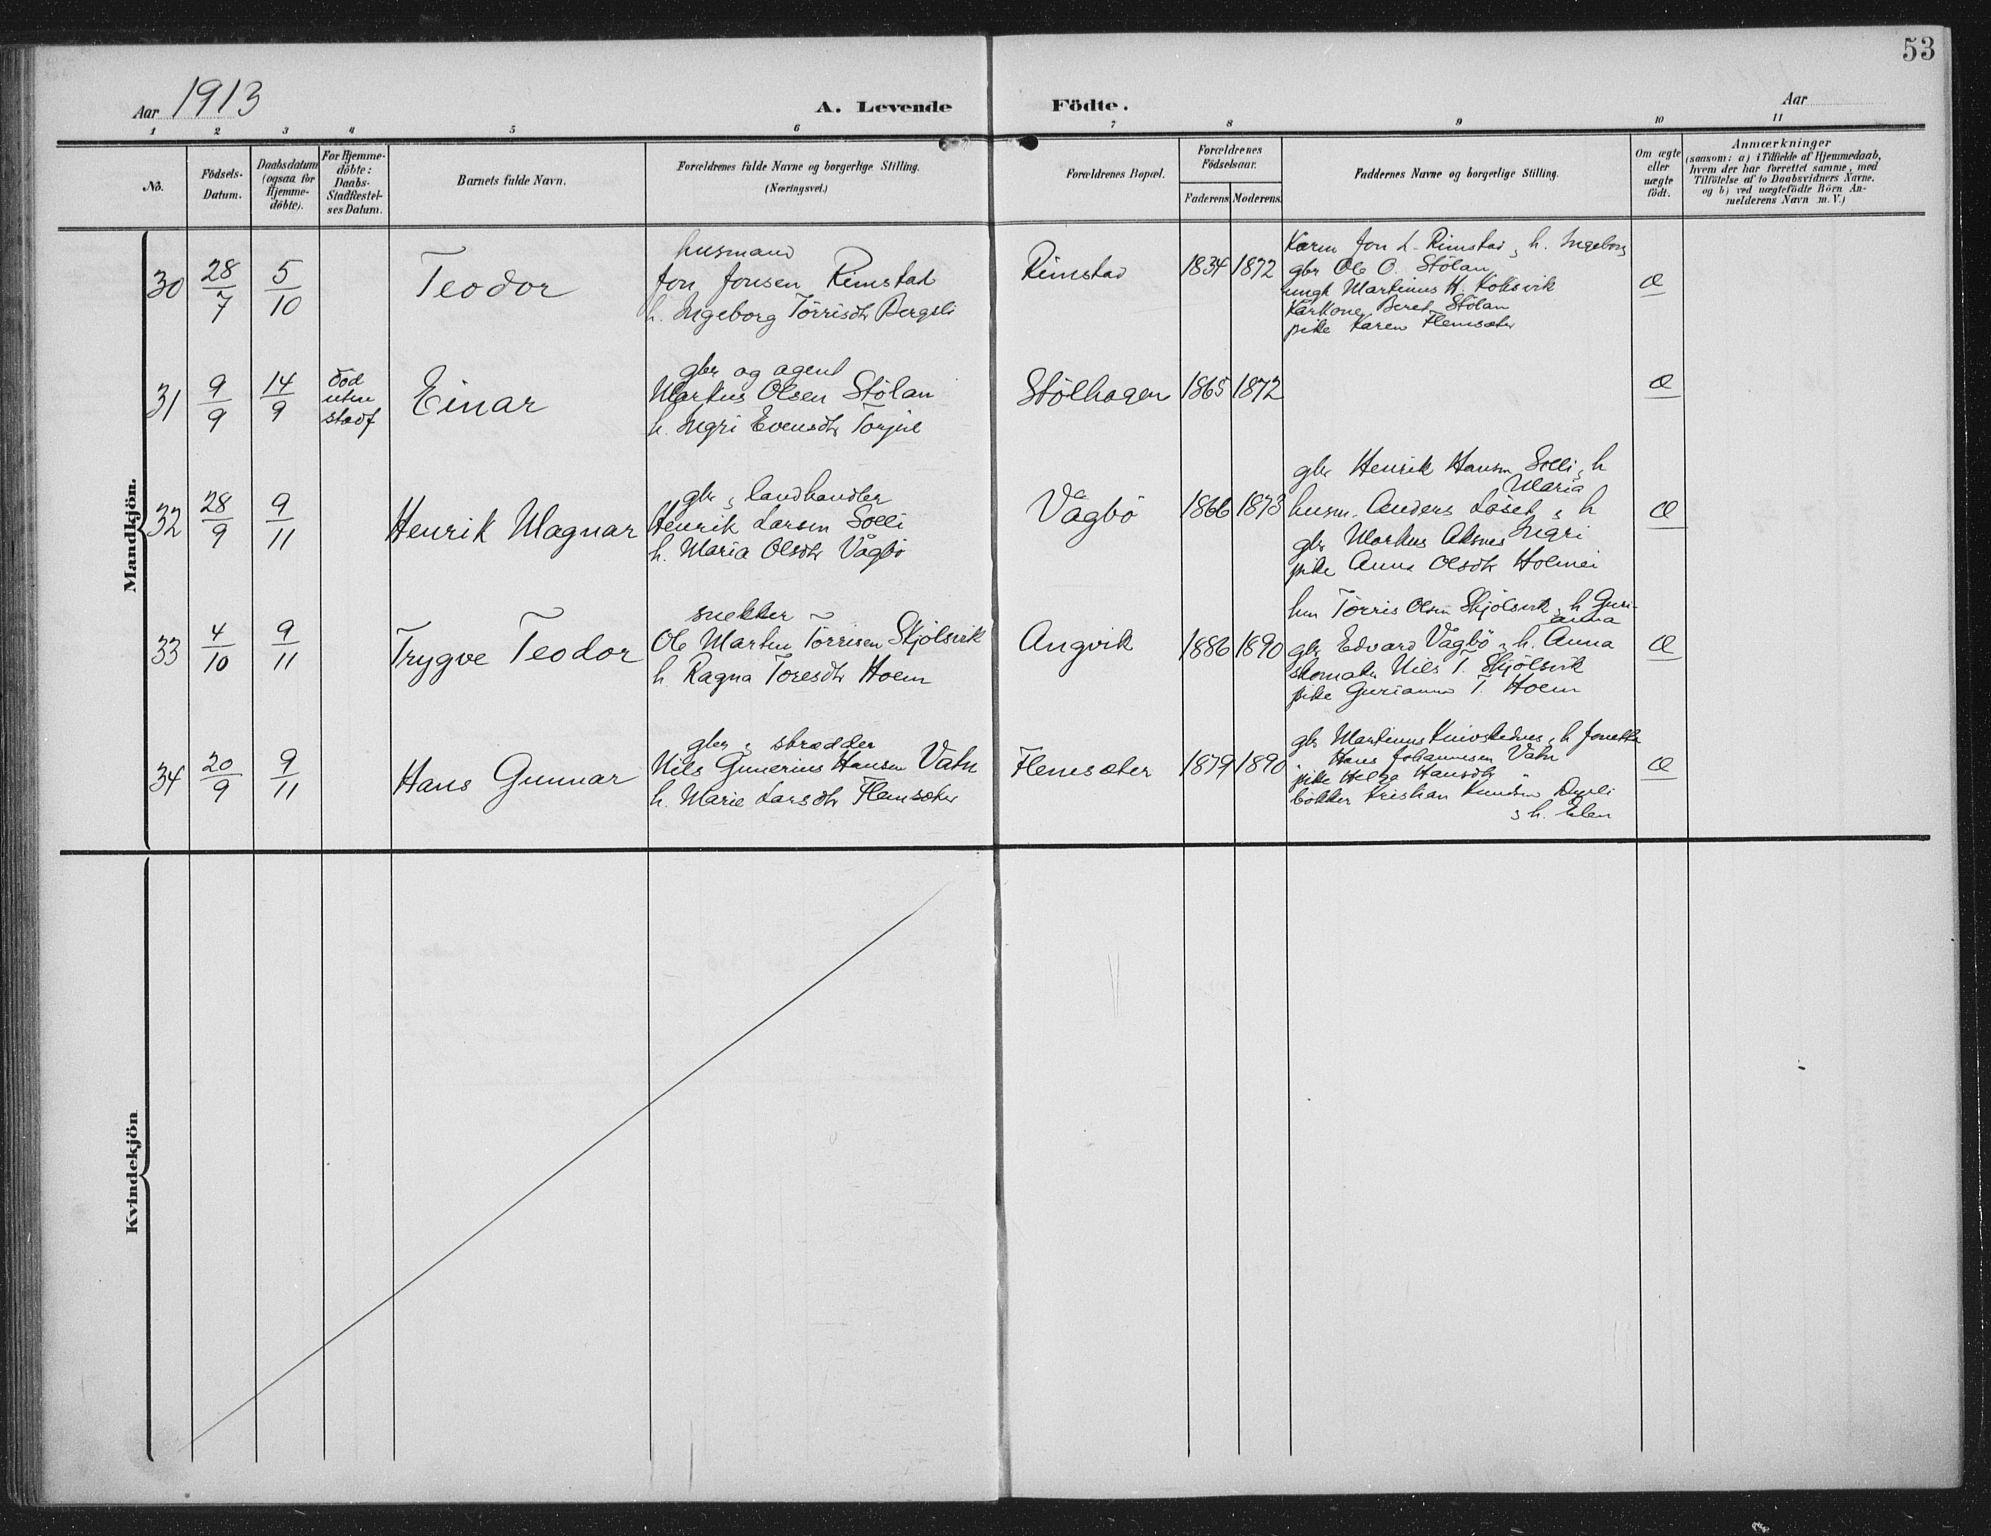 53
Aar 1913
A. Levende Födte.
Aar
1 2 3 4 5 6 7 8 9 10 11
No.
Födsels-
Datum.
Daabsdatum
(ogsaa for
Hjemme-
döbte).
For Hjemme-
döbte:
Daabs-
Stadfæstel-
ses Datum.
Barnets fulde Navn.
Forældrenes fulde Navne og borgerlige Stilling.
(Næringsvei.)
Forældrenes Bopæl.
Forældrenes
Födselsaar.
Faderens
Moderens
Faddernes Navne og borgerlige Stilling.
Om ægte
eller
uægte
födt.
Anmærkninger
(saasom: a) i Tilfælde af Hjemmedaab,
hvem der har forrettet samme, med
Tilföielse af to Daabsvidners Navne,
og b) ved uægtefödte Börn An-
melderens Navn m. V.)
Mandkjön.
30
28/7
5/10
Teodor
husmand
Jon Jonsen Rimstad
h. Ingeborg Törrisdtr Bergsli
Rimstad
1834 1872
Jon L. Rimstad, h. Ingeborg
gbr Ole O. Stölan
ungk Martinus H. Koksvik
Kårkone Beret Stölan
pike Karen Flemsæter
Æ
31
9/9
14/9
död
uten
stadf
Einar
gbr og agent
Markus Olsen Stölan
h. Ingri Evensdtr Torjul
Stölhagen
1865 1872
Æ
32
28/9
9/11
Henrik Magnar
gbr, landhandler
Henrik Larsen Solli
h. Maria Olsdtr Vågbö
Vågbö
1866 1873
gbr Henrik Hansen Solli, h
Maria
husm. Anders Löset, h
Ingri
gbr Markus Aksnes
pike Anna Olsdtr Holmei
Æ
33
4/10
9/11
Trygve Teodor
snekker
Ole Martin Törrisen Skjölsvik
h. Ragna Toresdtr Hoem
Angvik
1886 1890
Törris Olsen Skjölsvik, h Guri-
anna
gbr Edvard Vågbö, h. Anna
skomaker Nils T. Skjölsvik
pike Gurianna T. Hoem
Æ
34
20/9
9/11
Hans Gunnar
gbr, skrædder
Nils Gunerius Hansen Vatn
h. Marie Larsdtr Flemsæter
Flemsæter
1879 1890
gbr Martinus, h Jonetta
" Hans Johannesen Vatn
pike Helga Hansdtr "
bökker Kristian Knudsen
h. Elen
Æ
Kvindekjön